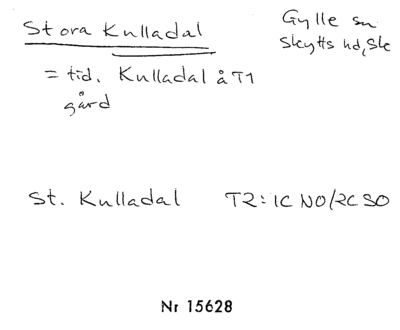 Stora Kulladal
Gylle sn
Skytts hd, Sk
= tid. Kulladal å T1
gård
St. Kulladal T2: 1C NO/2C SO
Nr 15628